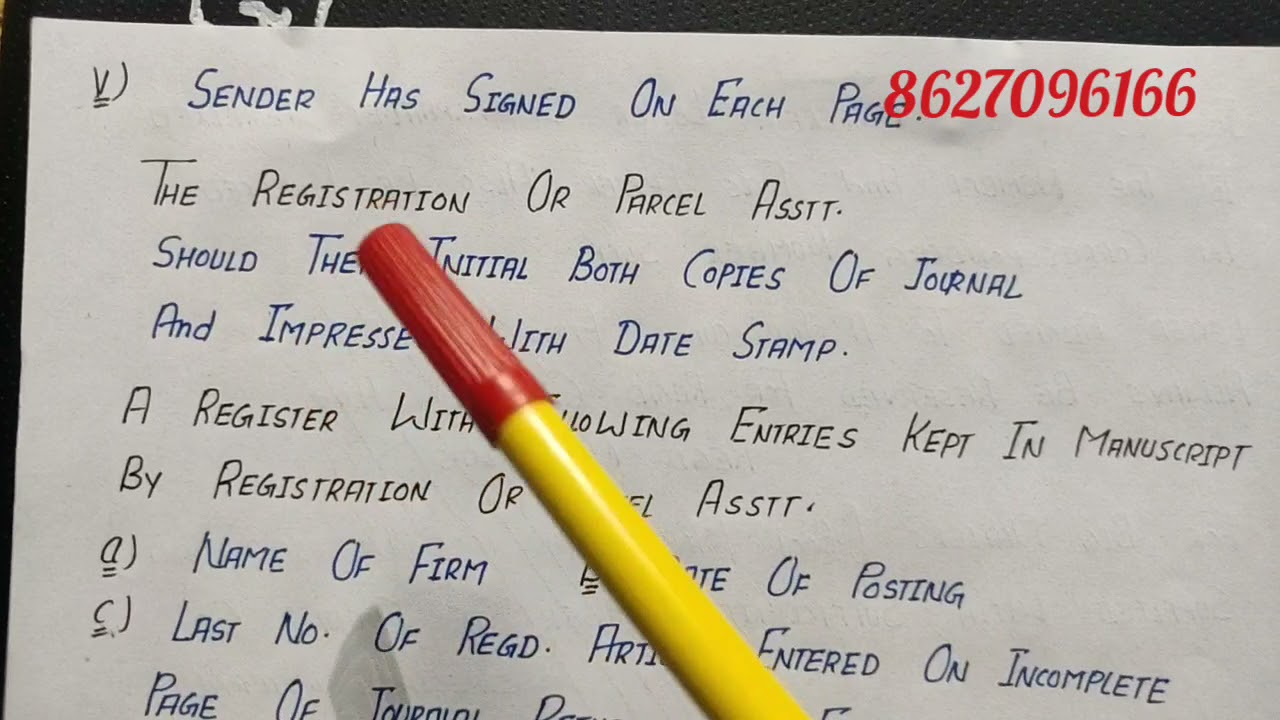 V) SENDER HAS SIGNED ON EACH PAGE.
8627096166
THE REGISTRATION OR PARCEL ASSTT.
SHOULD INITIAL BOTH COPIES OF JOURNAL
And WITH DATE STAMP.
A REGISTER WITH ENTRIES KEPT IN MANUSCRIPT
By REGISTRATION OR ASSTT.
a) NAME OF FIRM OF POSTING
c) LAST NO. OF REGD. ENTERED ON INCOMPLETE
PAGE OF JOURNAL